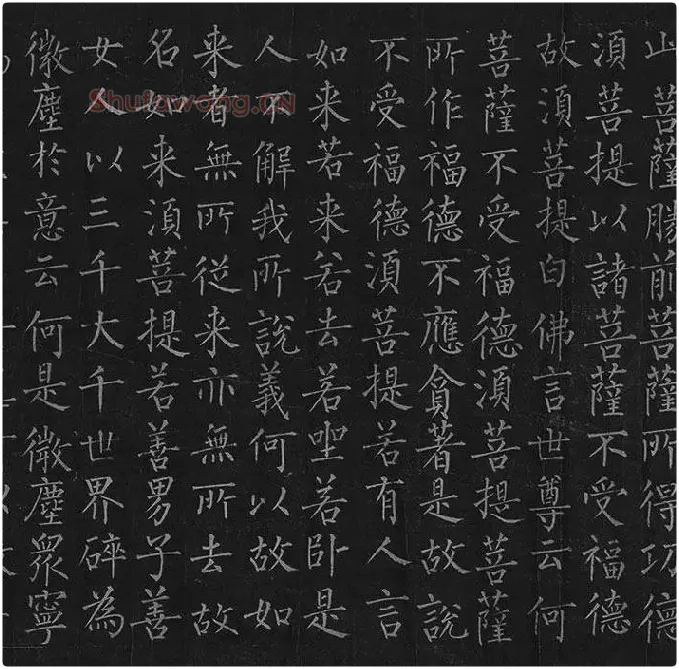 菩薩勝前菩薩所得功德
須菩提以諸菩薩不受福德
故須菩提白佛言世尊云何
菩薩不受福德須菩提菩薩
所作福德不應貪著是故說
不受福德須菩提若有人言
如来若来若去若坐若卧是
人不解我所說義何以故如
来者無所從来亦無所去故
名如来須菩提若善男子善
女人以三千大千世界碎為
微塵於意云何是微塵眾寧
Shufawang.CN